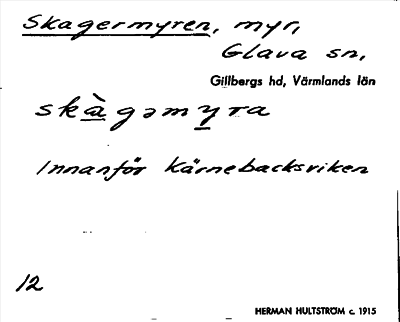 Skagermyren, myr,
Glava sn,
Gillbergs hd, Värmlands län
skàgəmyra
Innanför Kärnebacksviken
12
HERMAN HULTSTRÖM c. 1915